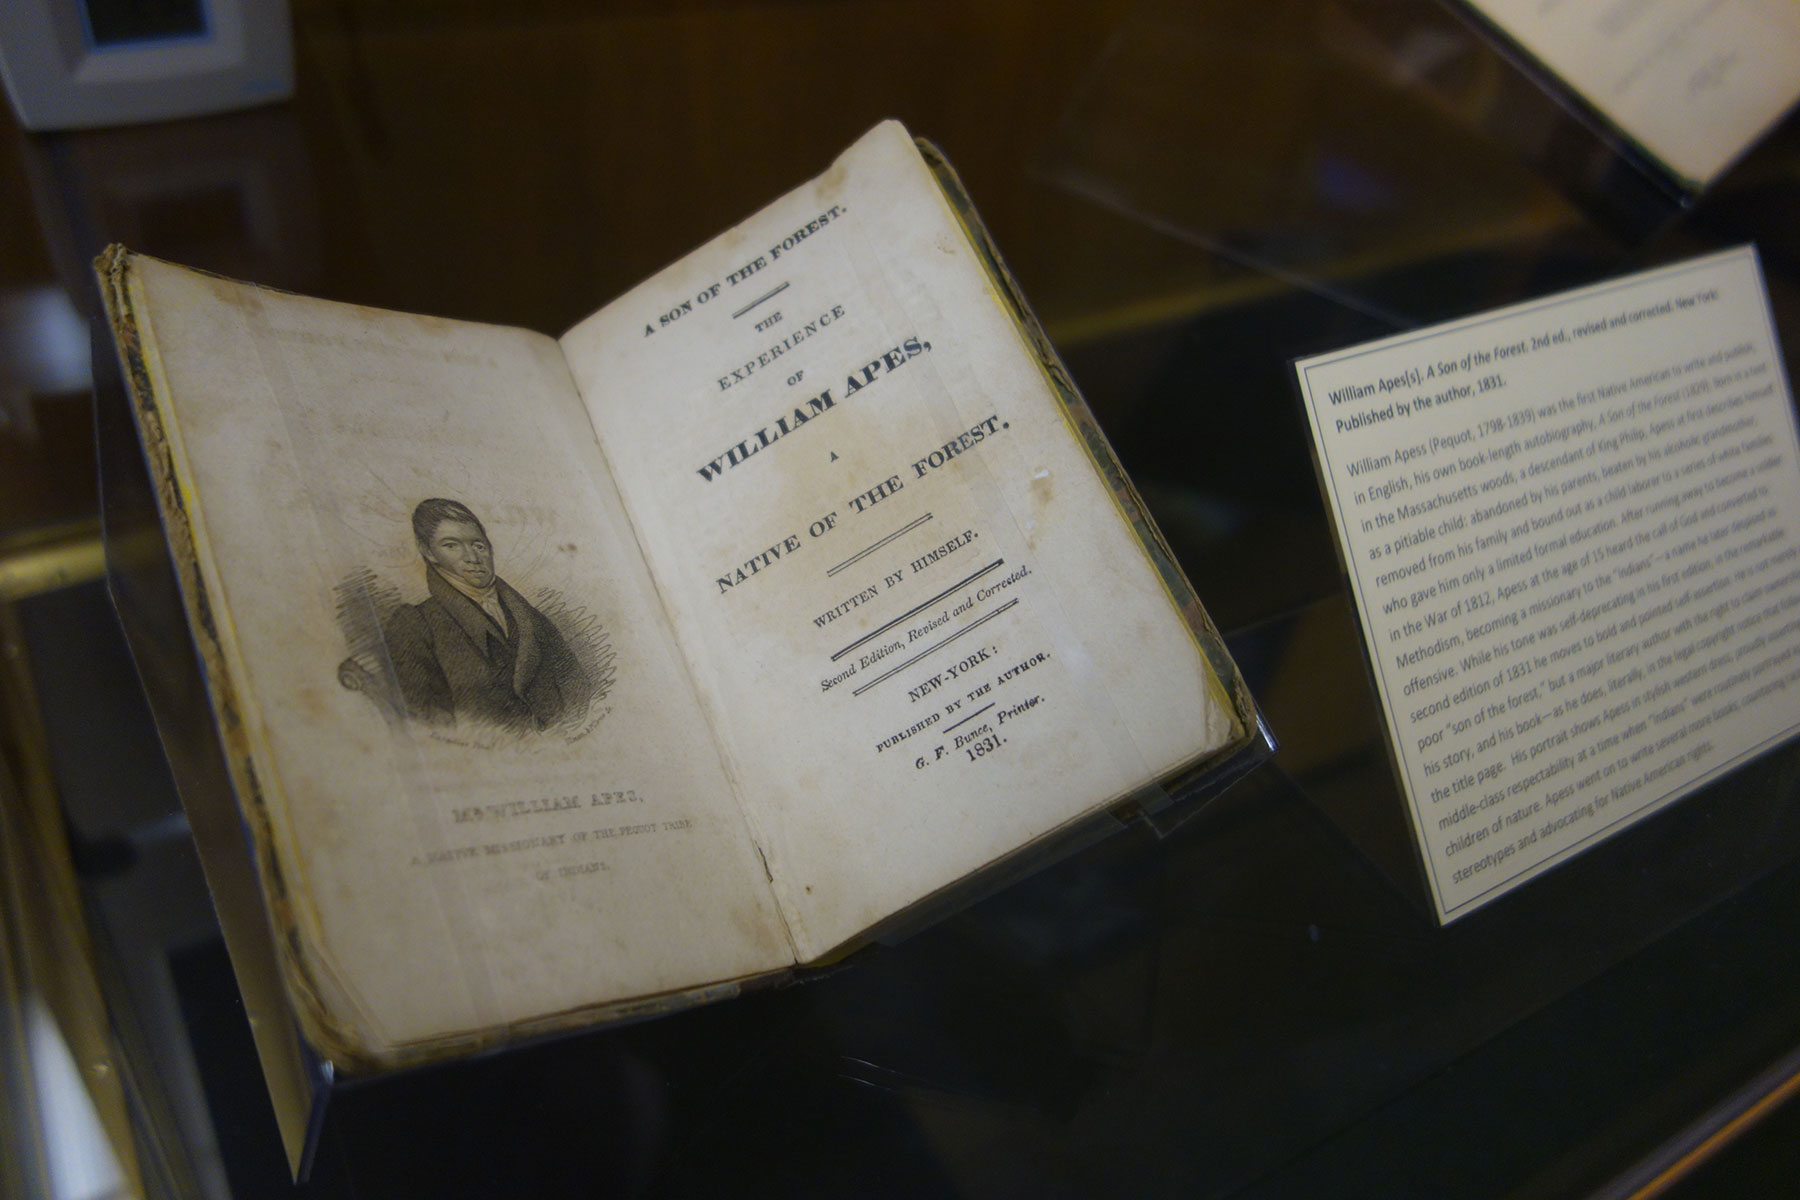 Mr WILLIAM APES,
A NATIVE MISSIONARY OF THE PEQUOT TRIBE
OF INDIANS.
A SON OF THE FOREST.
THE
EXPERIENCE
OF
WILLIAM APES,
A
NATIVE OF THE FOREST.
WRITTEN BY HIMSELF.
Second Edition, Revised and Corrected.
NEW-YORK:
PUBLISHED BY THE AUTHOR.
G. F. Bunce, Printer.
1831.
William Apes[s]. A Son of the Forest. 2nd ed., revised and corrected. New York:
Published by the author, 1831.
William Apess (Pequot, 1798-1839) was the first Native American to write and publish,
in English, his own book-length autobiography, A Son of the Forest (1829). Born in a tent
in the Massachusetts woods, a descendant of King Philip, Apess at first describes himself
as a pitiable child: abandoned by his parents, beaten by his alcoholic grandmother,
removed from his family and bound out as a child laborer to a series of white families
who gave him only a limited formal education. After running away to become a soldier
in the War of 1812, Apess at the age of 15 heard the call of God and converted to
Methodism, becoming a missionary to the "Indians"—a name he later despised as
offensive. While his tone was self-deprecating in his first edition, in the remarkable
second edition of 1831 he moves to bold and pointed self-assertion. He is not merely a
poor "son of the forest," but a major literary author with the right to claim ownership
his story, and his book—as he does, literally, in the legal copyright notice that follows
the title page. His portrait shows Apess in stylish western dress, proudly asserting
middle-class respectability at a time when "Indians" were routinely portrayed as
children of nature. Apess went on to write several more books, countering
stereotypes and advocating for Native American rights.